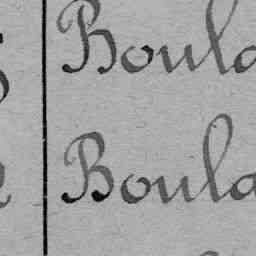 Boula
Boula